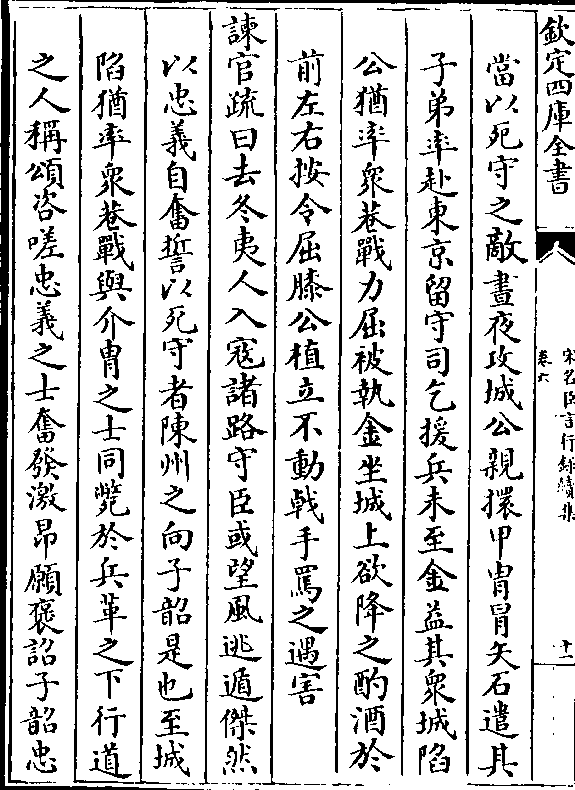 欽定四庫全書
宋名臣言行録續集
卷六
十一
當以死守之敵晝夜攻城公親擐甲冑冒矢石遣其
子弟率赴東京留守司乞援兵未至金益其衆城陷
公猶率衆巷戰力屈被執金坐城上欲降之酌酒於
前左右按令屈膝公植立不動戟手罵之遇害
諫官疏曰去冬夷人入寇諸路守臣或望風逃遁傑然
以忠義自奮誓以死守者陳州之向子韶是也至城
陷猶率衆巷戰與介冑之士同斃於兵革之下行道
之人稱頌咨嗟忠義之士奮發激昂願褒詔子韶忠